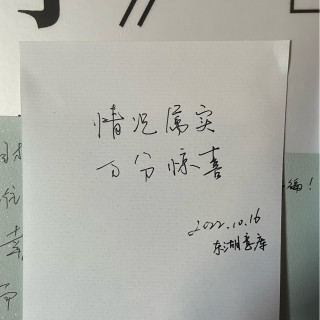 情况属实
万分惊喜
2022.10.16
东湖意库
往
幸
而
！
》